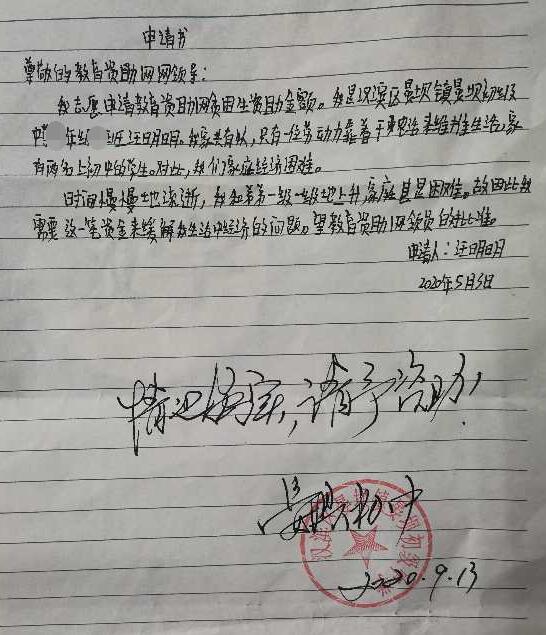 申请书
尊敬的教育资助网网领导:
我志愿申请教育资助网贫困生资助金额。我是汉滨区晏坝镇晏坝初级
中 年级 班汪明明。我家共有 人,只有一位劳动力靠着干 活来维持生活,家
有两名上初中的学生。对此,我们家庭经济困难。
时间慢慢地流逝,我和弟弟一级一级地上升,家庭甚是困难。故因此我
需要这一笔资金来缓解我生活中经济的问题。望教育资助网领员的批准。
申请人:汪明明
2020年5月3日
情况属实,请予资助!
晏坝初中
2020.9.13